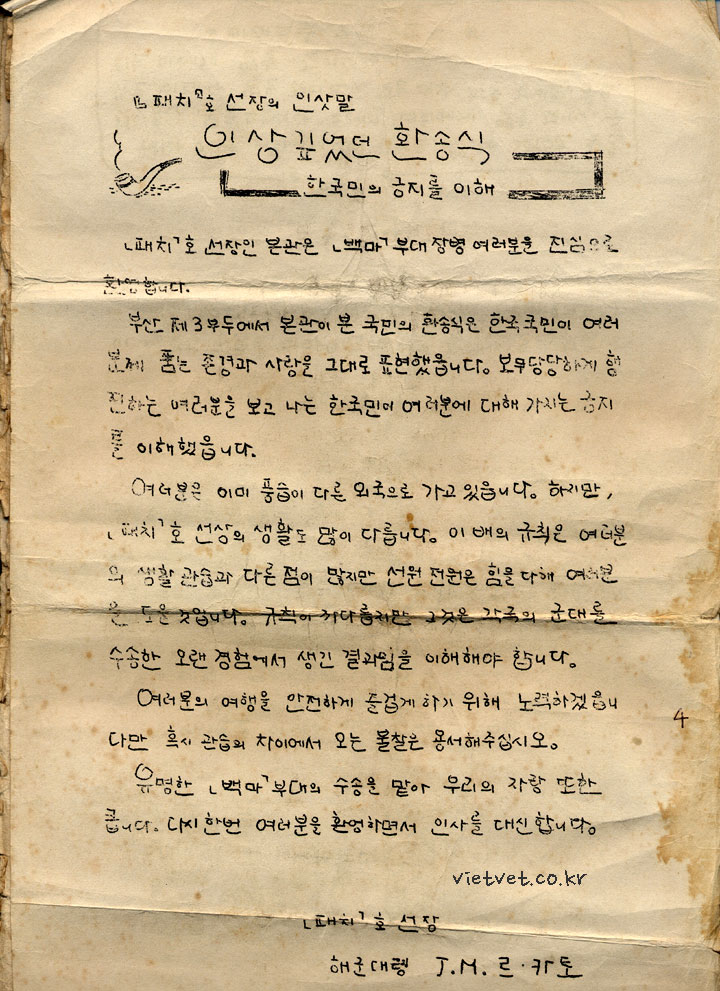 「패치」호 선장의 인삿말
인상 깊었던 환송식
한국민의 긍지를 이해
「패치」호 선장인 본관은 「백마」부대 장병 여러분을 진심으로
환영합니다.
부산 제3부두에서 본관이 본 국민의 환송식은 한국국민이 여러
분께 품는 존경과 사랑을 그대로 표현했읍니다. 보무당당하게 행
진하는 여러분을 보고 나는 한국민이 여러분에 대해 가지는 긍지
를 이해했읍니다.
여러분은 이미 풍습이 다른 외국으로 가고 있읍니다. 하지만,
「패치」호 선상의 생활도 많이 다릅니다. 이 배의 규칙은 여러분
의 생활 관습과 다른 점이 많지만 선원 전원은 힘을 다해 여러분
을 도울 것입니다. 규칙이 까다롭지만 그것은 각국의 군대를
수송한 오랜 경험에서 생긴 결과임을 이해해야 합니다.
여러분의 여행을 안전하게 즐겁게 하기 위해 노력하겠읍니
다만 혹시 관습의 차이에서 오는 불찰은 용서해주십시오.
유명한 「백마」부대의 수송을 맡아 우리의 자랑 또한
큽니다. 다시 한번 여러분을 환영하면서 인사를 대신합니다.
4
vietvet.co.kr
「패치」호 선장
해군대령 J.M. 르·카토